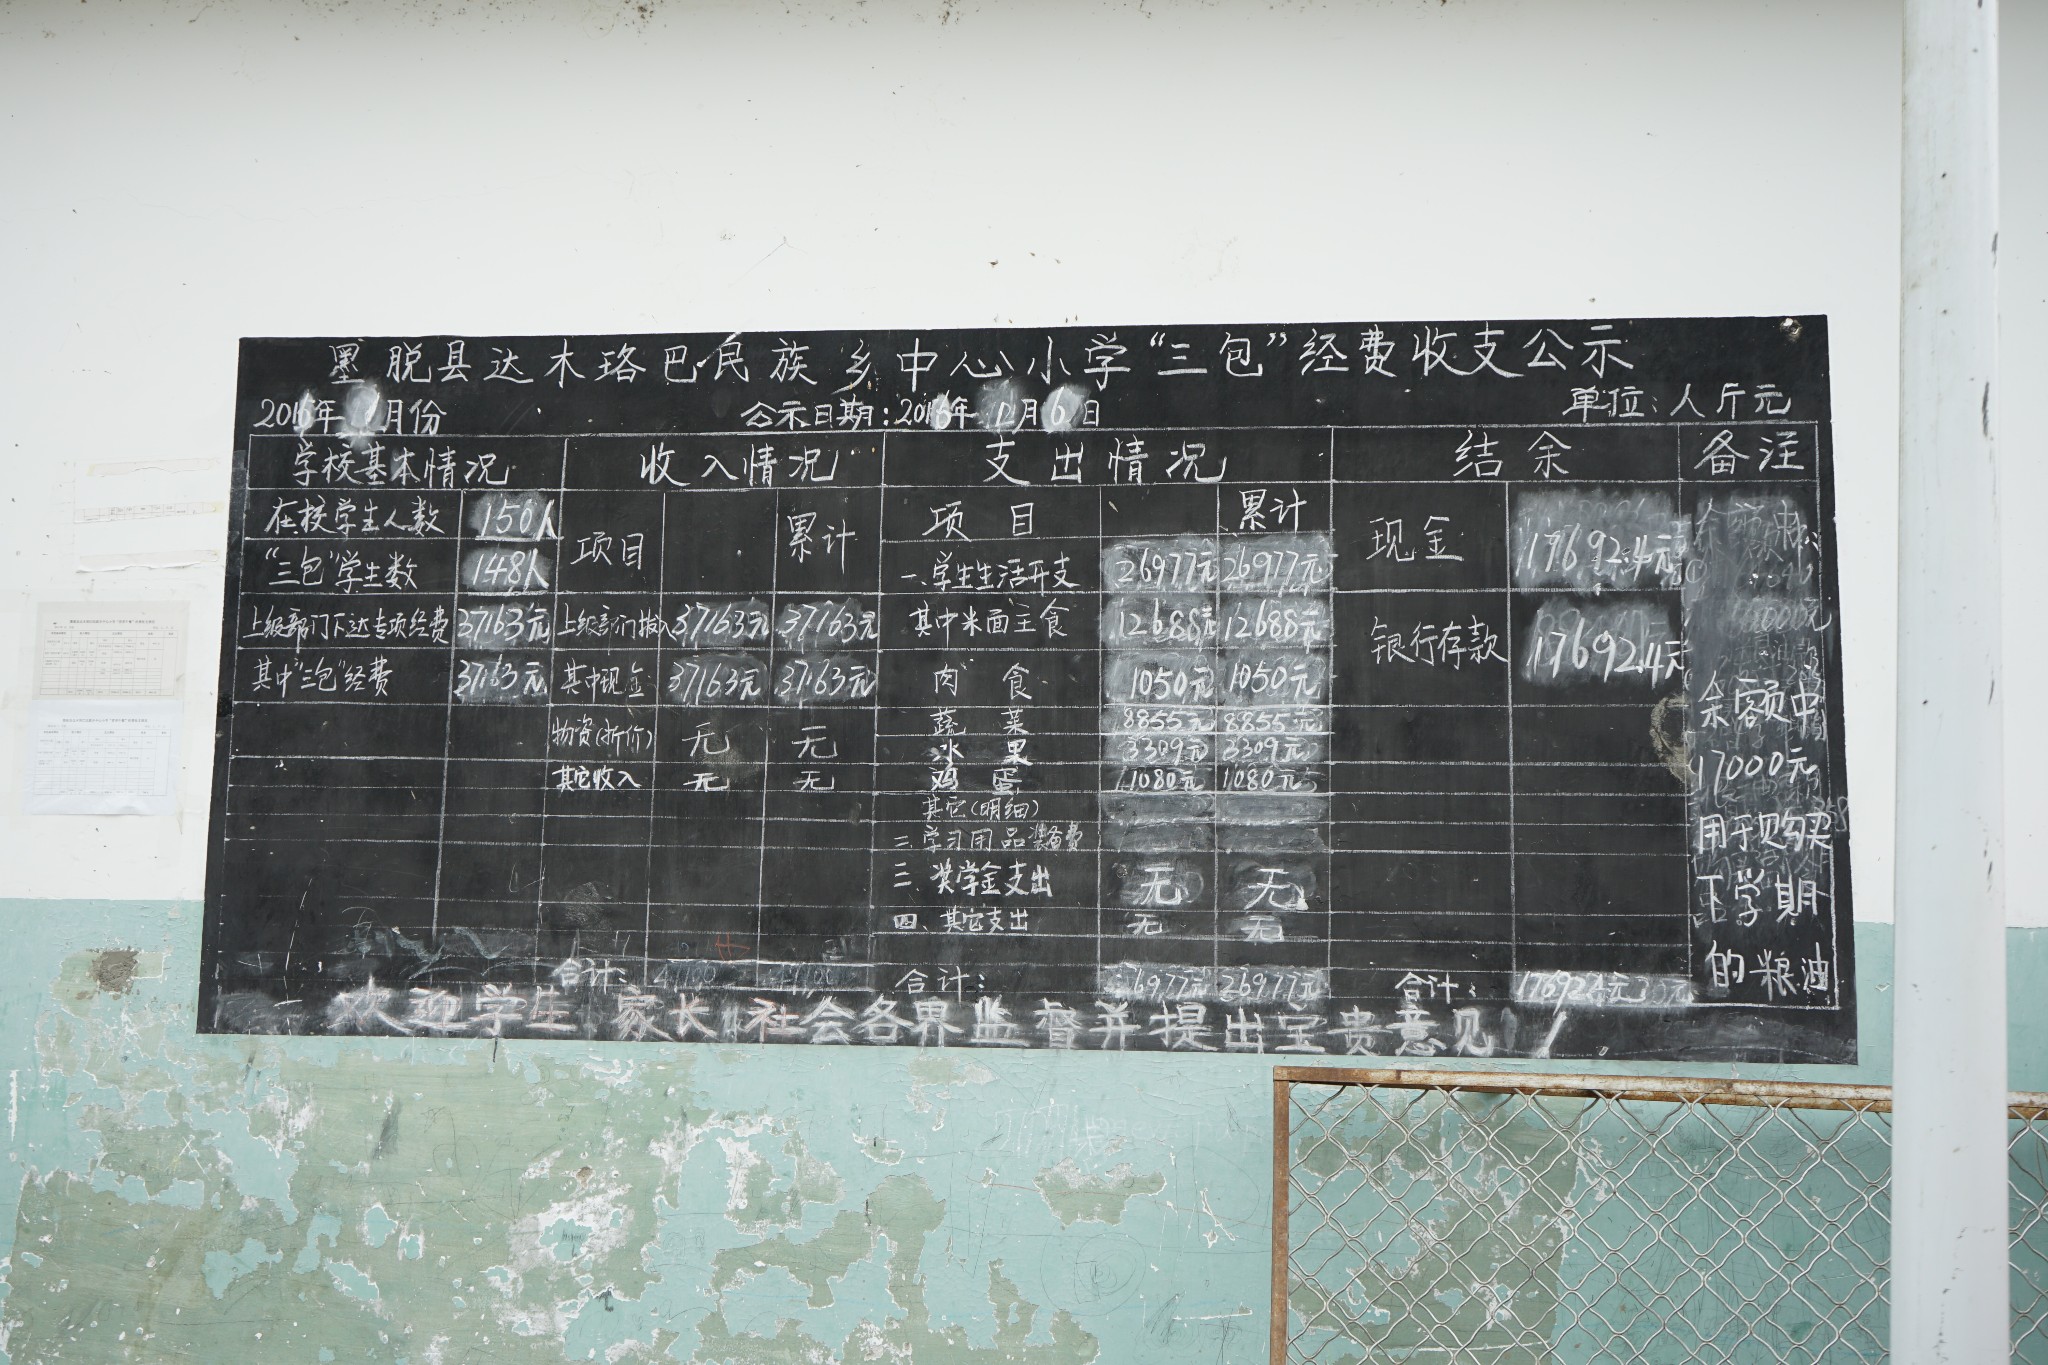 墨脱县达木珞巴民族乡中心小学“三包”经费收支公示
2016年 月份 公示日期：2016年 月6日 单位：人斤元
学校基本情况 收入情况 支出情况 结余 备注
在校学生人数 150人 项目 累计 项目 累计 现金 17692.4元
“三包”学生数 148人 一、学生生活开支 26977元 26977元
上级部门下达专项经费 37163元 上级部门拨入 37163元 37163元 其中米面主食 12688元 12688元 银行存款 17692.4元
其中“三包”经费 37163元 其中现金 37163元 37163元 肉食 1050元 1050元
物资(折价) 无 无 蔬菜 8855元 8855元
水果 3309元 3309元
其它收入 无 无 鸡蛋 1080元 1080元
其它(明细)
二学习用品装备费
三、奖学金支出 无 无
四、其它支出 无 无
合计： 合计： 26977元 26977元 合计： 17692.4元
余额中
17000元
用于购买
下学期
的粮油
欢迎学生 家长 社会各界监督并提出宝贵意见！